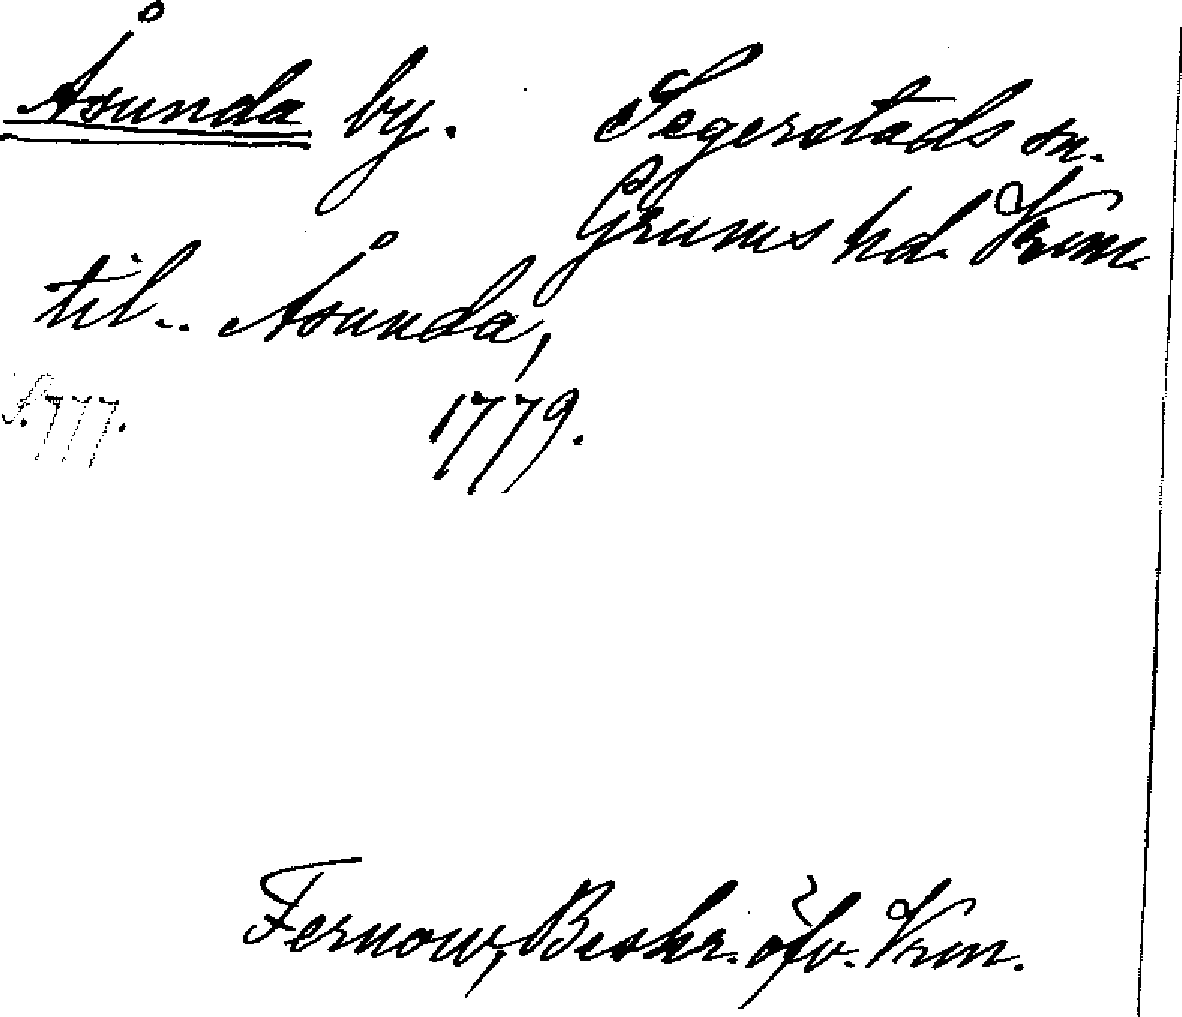 Åsunda by. Segerstads sn.
Grums hd. Vrm.
til.. Åsunda,
S. 777. 1779.
Fernow, Beskr. öfv. Vrm.